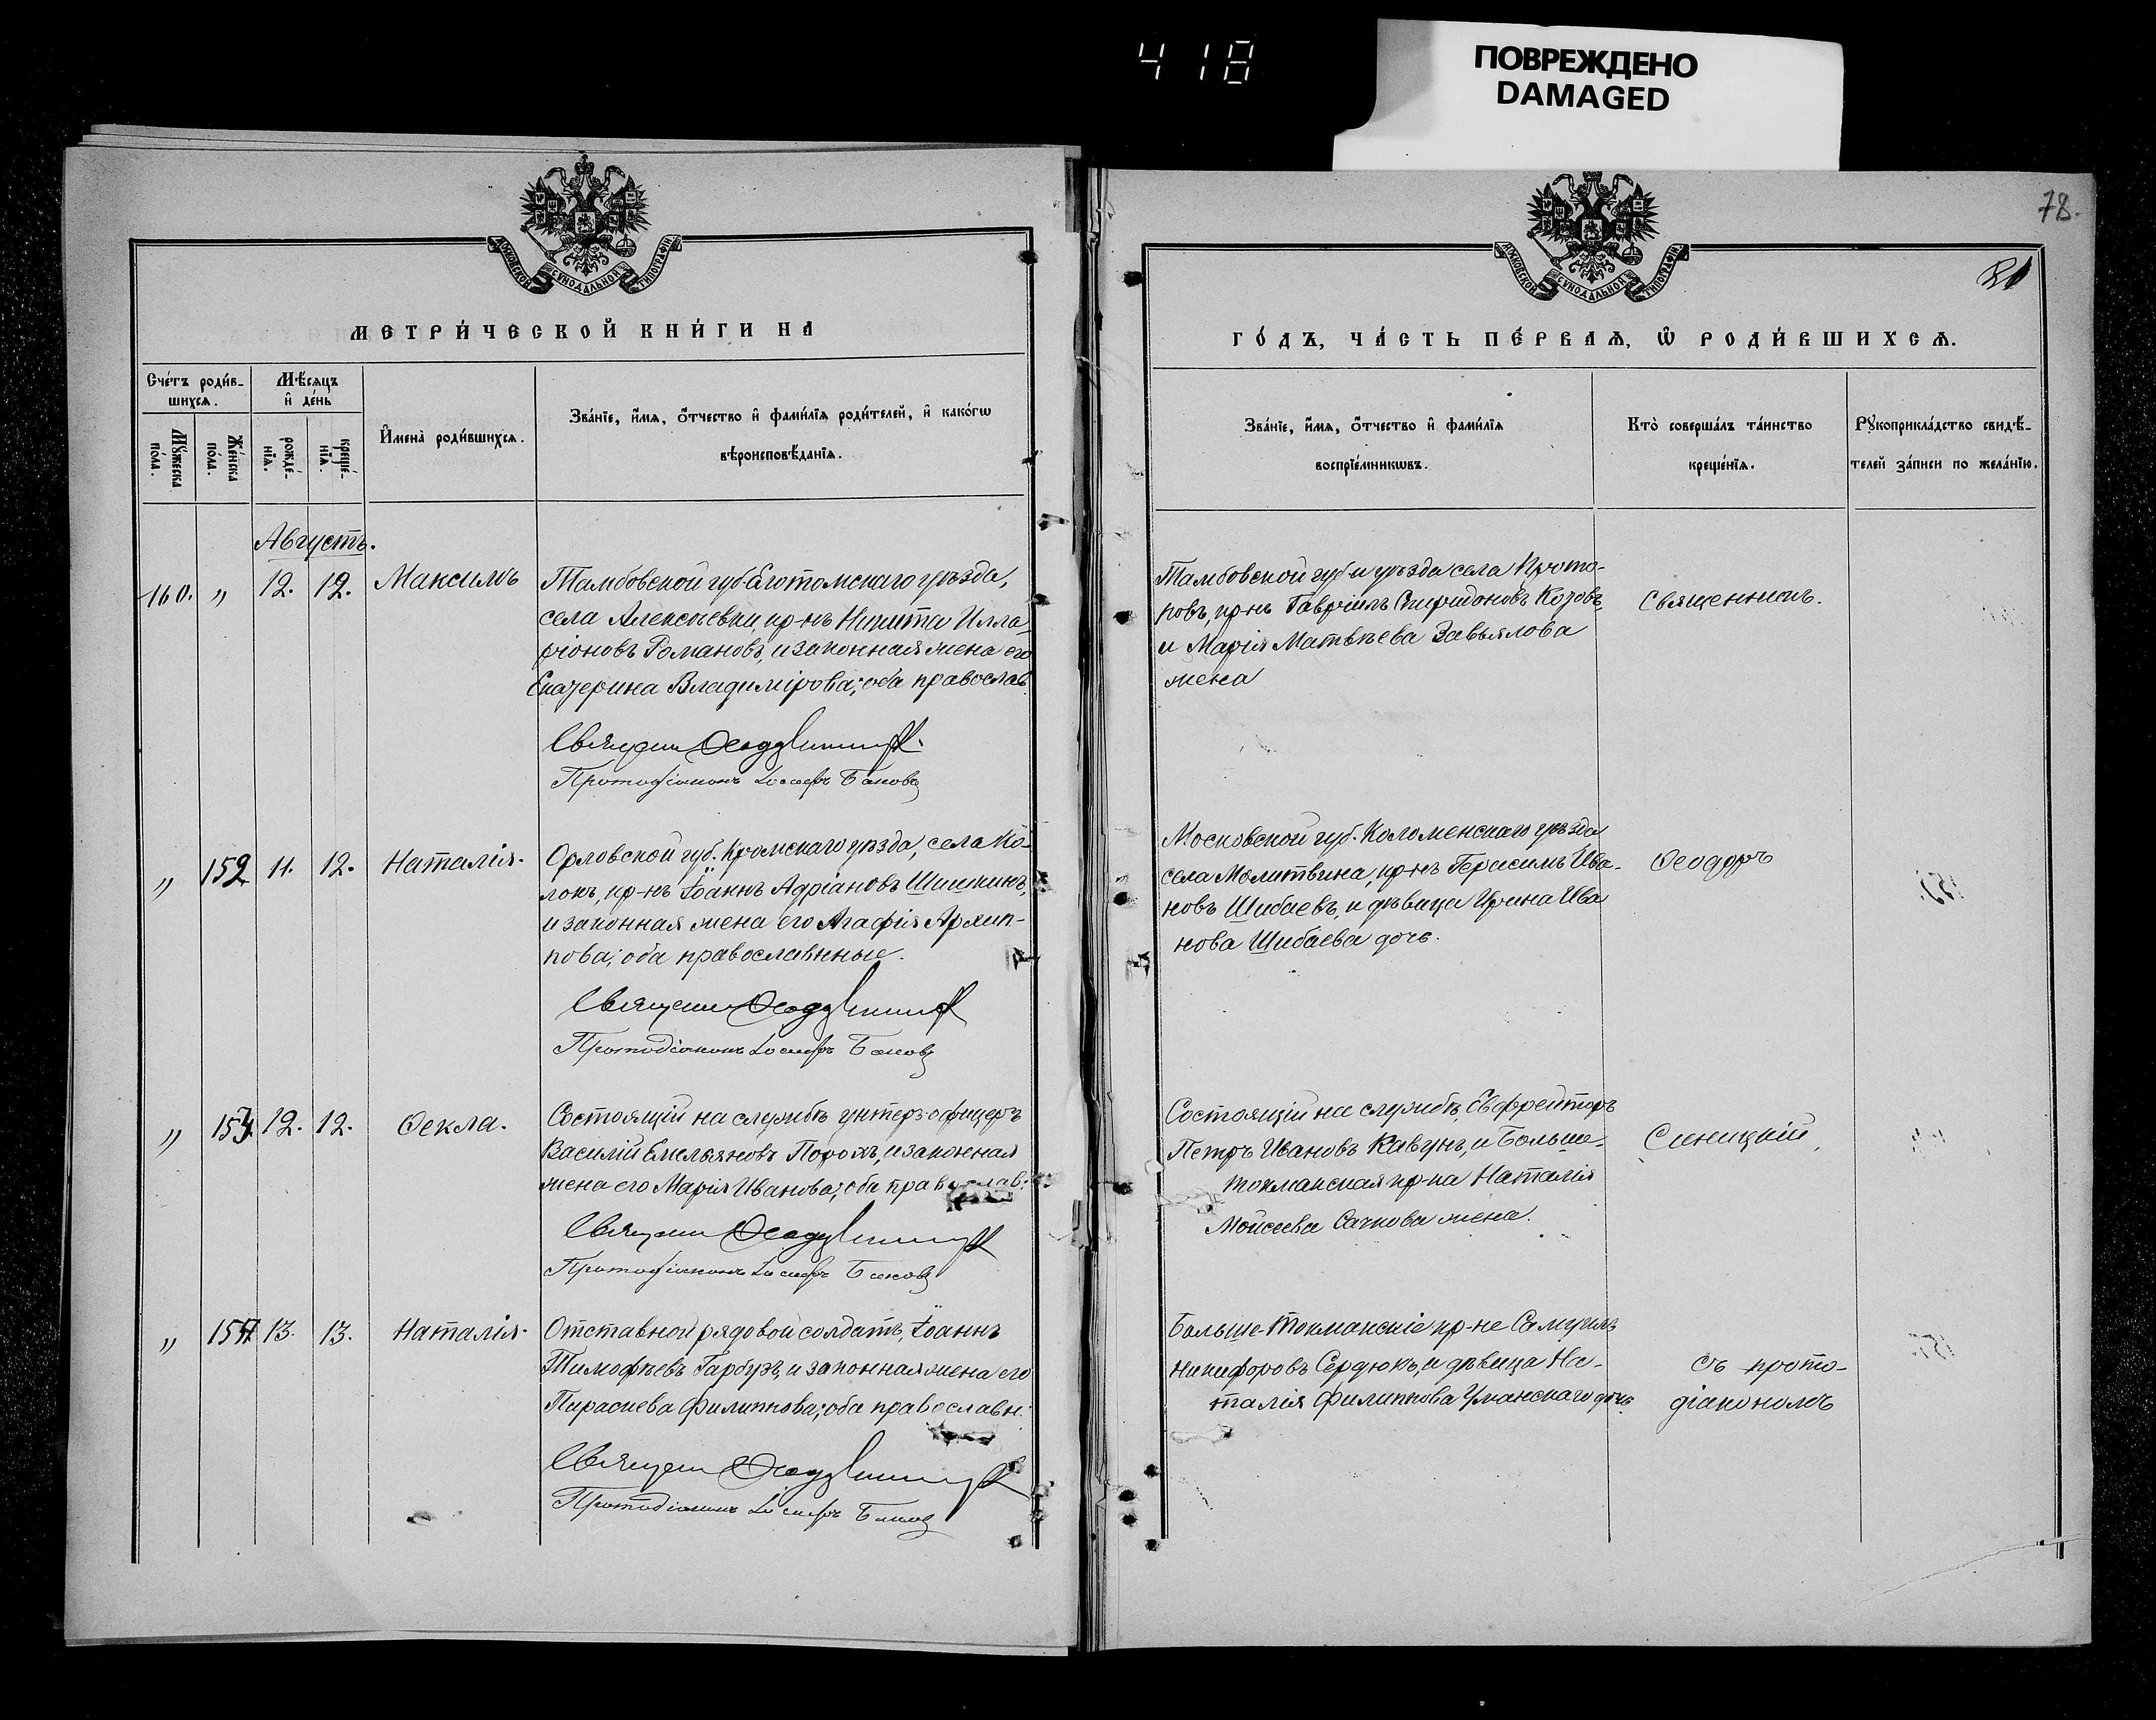 418
ПОВРЕЖДЕНО
DAMAGED
78.
МОСКОВСКОЙ СУНОДАЛЬНОЙ ТИПОГРАФІИ
МЕТРИ́ЧЕСКОЙ КНИ́ГИ НА
Сче́тъ роди́в-
шихсѧ.
Мѣ́сѧцъ
и҆ де́нь
Мꙋ́жеска
по́ла.
Же́нска
по́ла.
рожде́-
нїѧ.
креще́-
нїѧ.
И҆мена̀ роди́вшихсѧ.
Зва́нїе, и҆́мѧ, ѻ҆́тчество и҆ фами́лїѧ роди́телей, и҆ како́гѡ
вѣроисповѣ́данїѧ.
Августъ.
160. „ 12. 12. Максимъ
Тамбовской губ. уѣзда,
села Алексѣевки, кр-нъ Никита Илла-
ріоновъ Романовъ, и законная жена его
Екатерина Владимірова; оба православ.
Протодіаконъ Іосифъ Баковъ
„ 152 11. 12. Наталія.
Орловской губ. Кромскаго уѣзда, села Ко-
локъ, кр-нъ Іоаннъ Адріановъ Шишкинъ,
и законная жена его Агафія Архип-
пова; оба православные.
Протодіаконъ Іосифъ Баковъ
„ 153. 12. 12. Ѳекла.
Состоящій на службѣ унтеръ-офицеръ
Василій Емельяновъ и законная
жена его Марія Иванова; оба православ.
Протодіаконъ Іосифъ Баковъ
„ 154 13. 13. Наталія.
Отставной рядовой солдатъ, Іоаннъ
Тимофѣевъ Гарбузъ, и законная жена его
Параскева Филиппова; оба православн.
Протодіаконъ Іосифъ Баковъ
МОСКОВСКОЙ СУНОДАЛЬНОЙ ТИПОГРАФІИ
ГО́ДЪ, ЧА́СТЬ ПЕ́РВАѦ, Ѡ҆ РОДИ́ВШИХСѦ.
Зва́нїе, и҆́мѧ, ѻ҆́тчество и҆ фами́лїѧ
воспрїе́мникѡвъ.
Кто̀ соверша́лъ та́инство
креще́нїѧ.
Рꙋкоприкла́дство свидѣ́-
телей за́писи по жела́нїю.
Тамбовской губ. и уѣзда села
кр-нъ Гавріилъ Спиридоновъ Козовъ
и Марія Матвѣева Завьялова
жена
Священникъ.
Московской губ. Коломенскаго уѣзда
села Молитвина, кр-нъ Герасимъ Ива-
новъ Шибаевъ, и дѣвица Ирина Ива
нова Шибаева дочь.
Ѳеодоръ
Состоящій на службѣ, Ефрейторъ
Петръ Ивановъ Кавунъ, и Больше-
токмакская кр-ка Наталія
Моисеева Сачкова жена.
Синицкій,
Больше-Токмакскіе кр-не Самуилъ
Никифоровъ Сердюкъ, и дѣвица На-
талія Филиппова Уманскаго дочь.
съ прото-
діакономъ